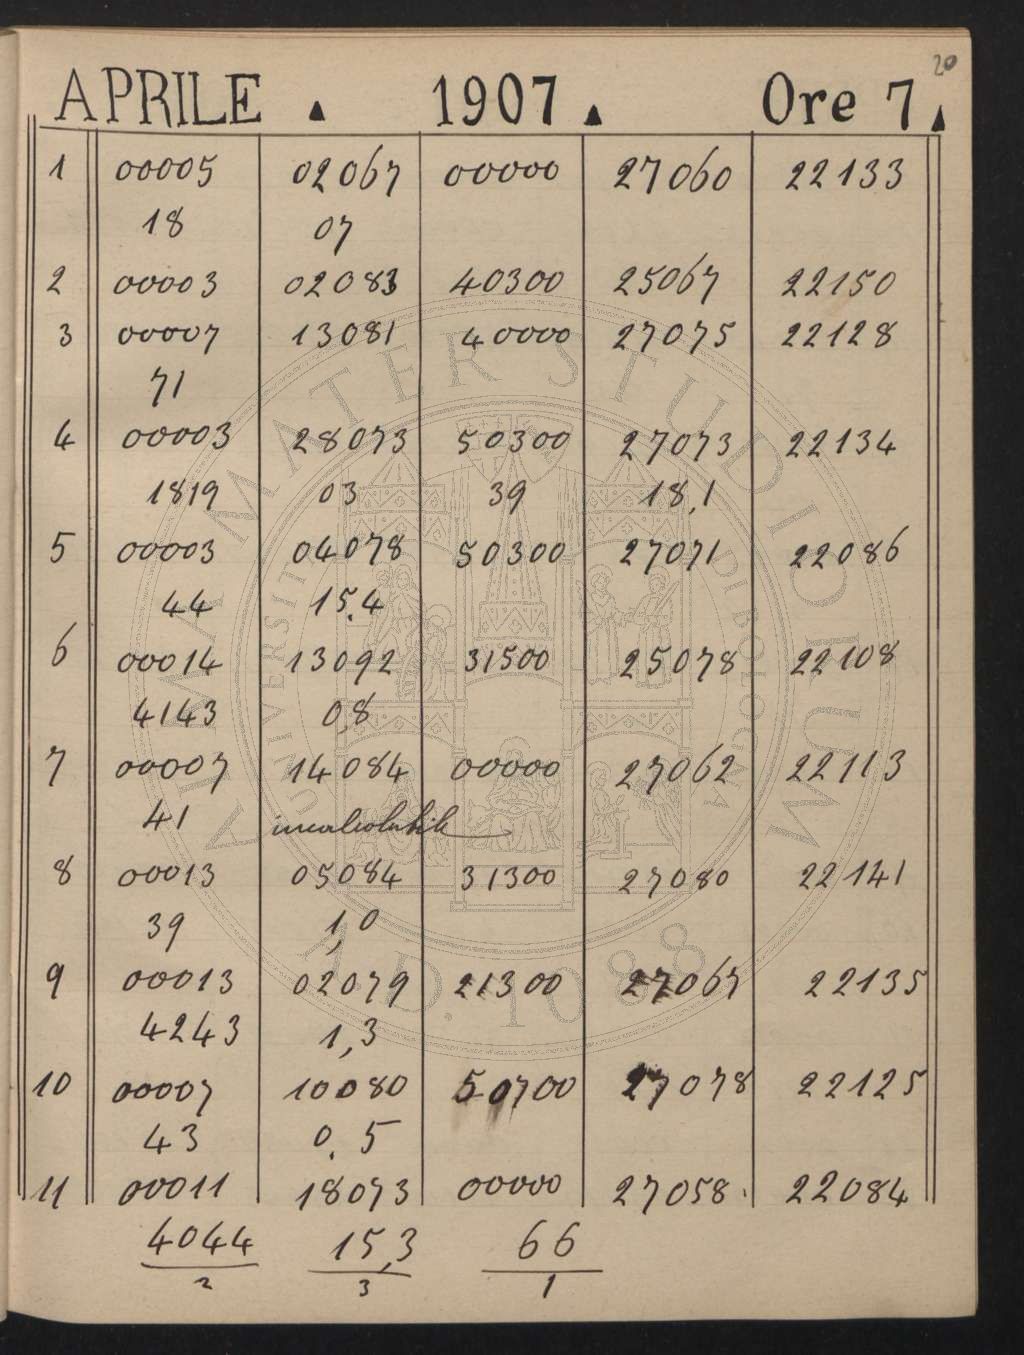 20
APRILE . 1907 . Ore 7.
1 00005 02067 00000 27060 22133
18 07
2 00003 02083 40300 25067 22150
3 00007 13081 40000 27075 22128
71
4 00003 28073 50300 27073 22134
1819 03 39 18,1
5 00003 04078 50300 27071 22086
44 15,4
6 00014 13092 31500 25078 22108
4143 0,8
7 00007 14084 00000 27062 22113
41 incalcolabile
8 00013 05084 31300 27080 22141
39 1,0
9 00013 02079 21300 27067 22135
4243 1,3
10 00007 10080 50700 27078 22125
43 0,5
11 00011 18073 00000 27058. 22084
4044 15,3 66
2 3 1
ALMA MATER STUDIORUM
A.D. 1088
UNIVERSITÀ DI BOLOGNA